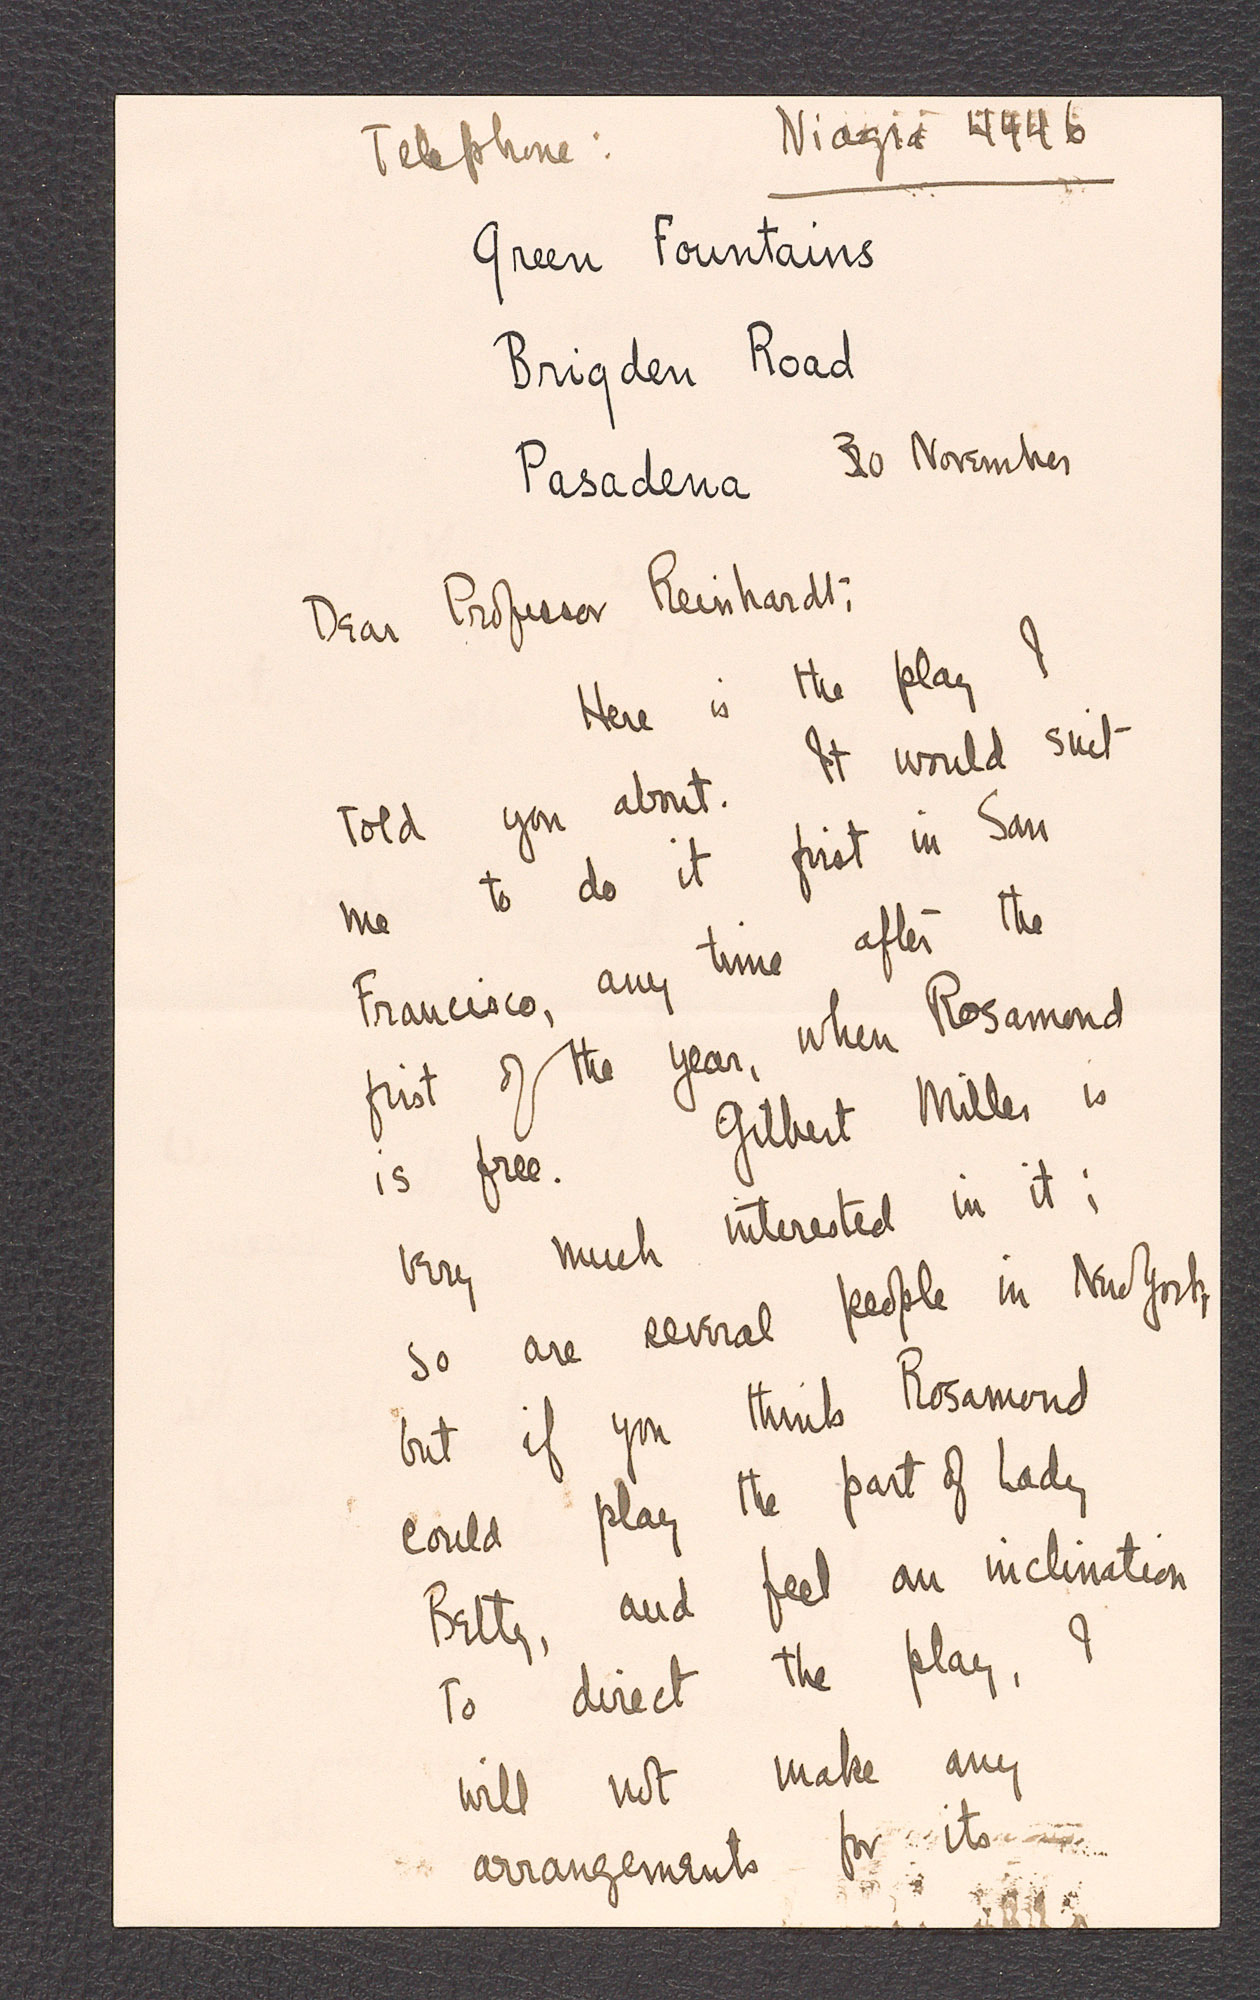 Telephone: Niagra 4446
Green Fountains
Brigden Road
Pasadena 30 November
Dear Professor Reinhardt;
Here is the play I
told you about. It would suit
me to do it first in San
Francisco, any time after the
first of the year, when Rosamond
is free. Gilbert Miller is
very much interested in it;
so are several people in New York,
but if you think Rosamond
could play the part of Lady
Betty, and feel an inclination
to direct the play, I
will not make any
arrangements for its